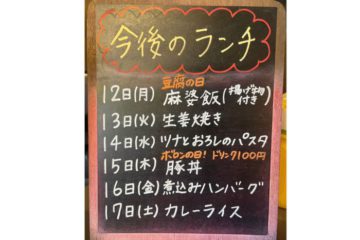 今後のランチ
豆腐の日
12日(月) 麻婆飯(揚げ物付き)
13日(火) 生姜焼き
14日(水) ツナとおろしのパスタ
ボロンの日! ドリンク100円
15日(木) 豚丼
16日(金) 煮込みハンバーグ
17日(土) カレーライス